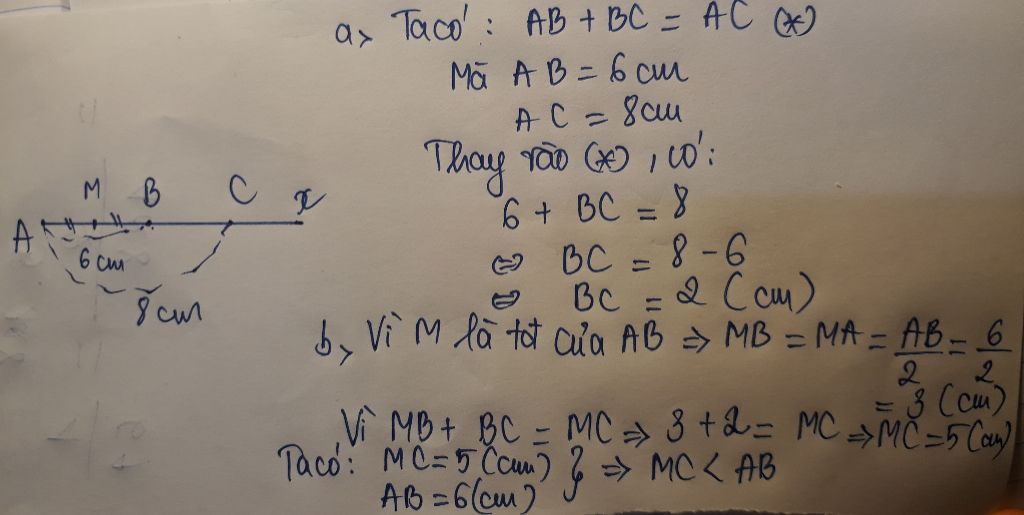 a, Ta có: AB + BC = AC (*)
Mà AB = 6 cm
AC = 8cm
Thay vào (*), có:
6 + BC = 8
⇔ BC = 8 - 6
⇔ BC = 2 (cm)
A M B C x
6 cm
8 cm
b, Vì M là tđ của AB ⇒ MB = MA = AB/2 = 6/2
= 3 (cm)
Vì MB + BC = MC ⇒ 3 + 2 = MC ⇒ MC = 5 (cm)
Ta có: MC = 5 (cm) } ⇒ MC < AB
AB = 6 (cm)